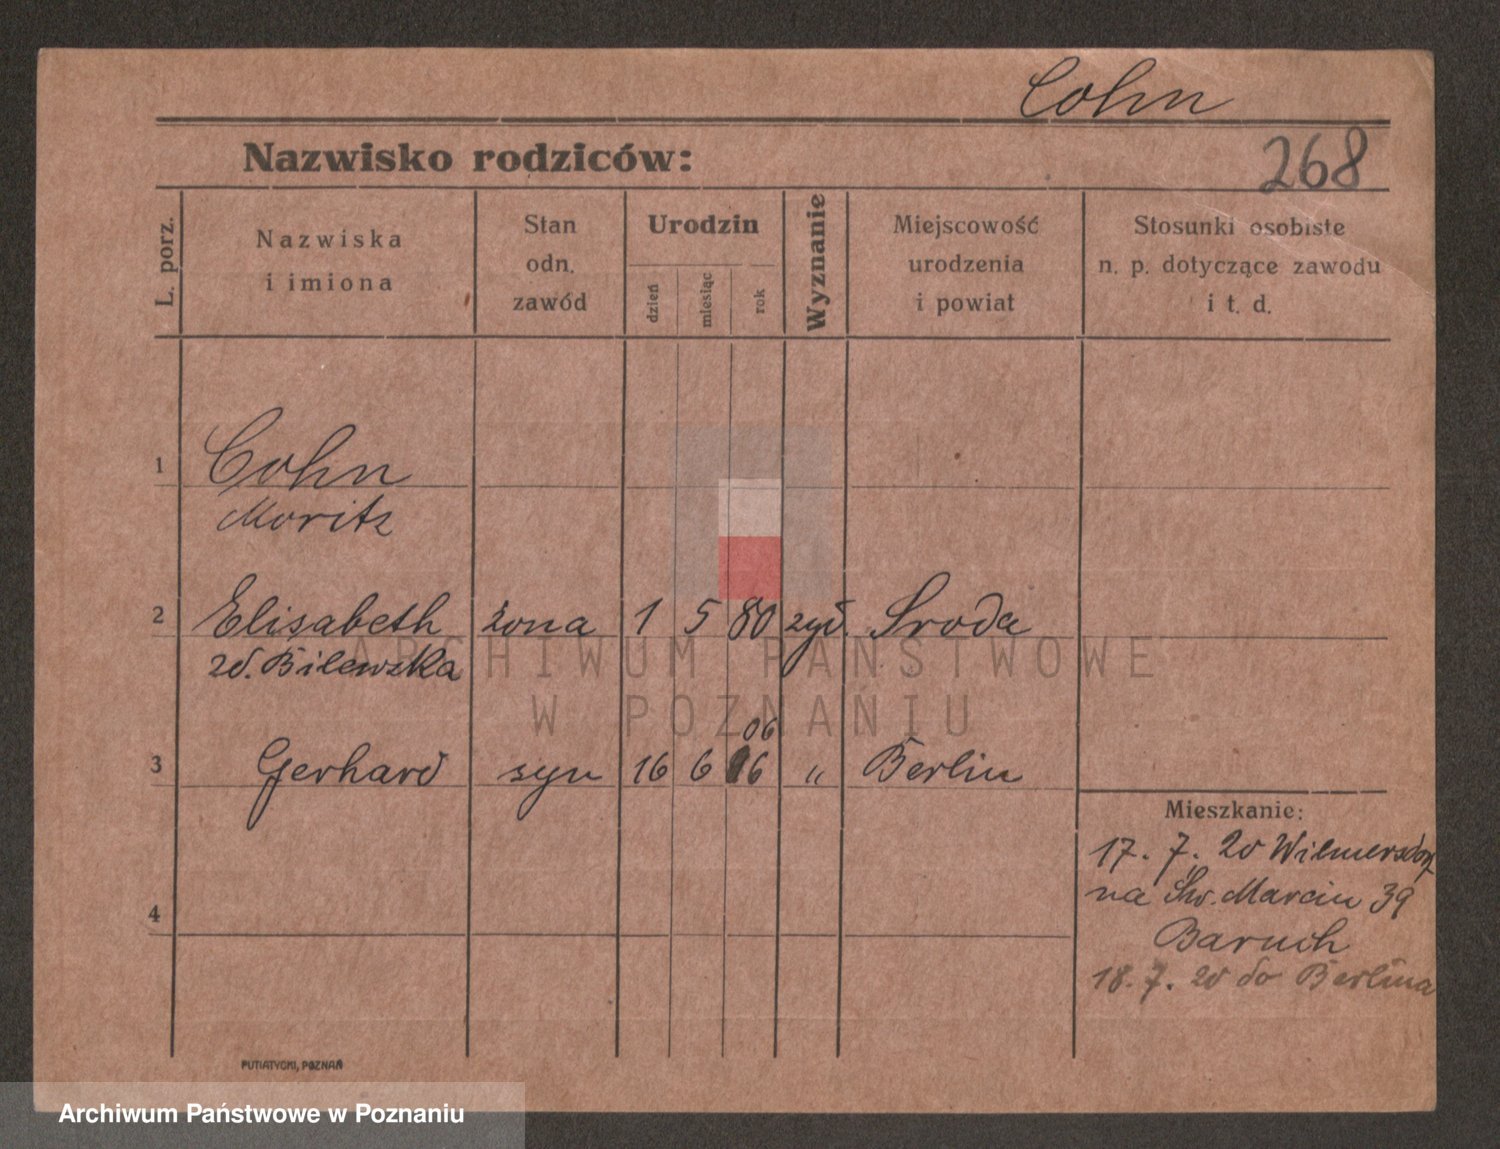 Cohn
Nazwisko rodziców:
268
L. porz.
Nazwiska
i imiona
Stan
odn.
zawód
Urodzin
dzień
miesiąc
rok
Wyznanie
Miejscowość
urodzenia
i powiat
Stosunki osobiste
n. p. dotyczące zawodu
i t. d.
1 Cohn
Moritz
2 Elisabeth żona 1 5 80 żyd. Sroda
zd. Bilewska
06
3 Gerhard syn 16 6 16 " Berlin
Mieszkanie:
17. 7. 20 Wilmersdorf
na Św. Marcin 39
4
Baruch
18. 7. 20 do Berlina
PUTIATYCKI, POZNAŃ
ARCHIWUM PAŃSTWOWE
W POZNANIU
Archiwum Państwowe w Poznaniu